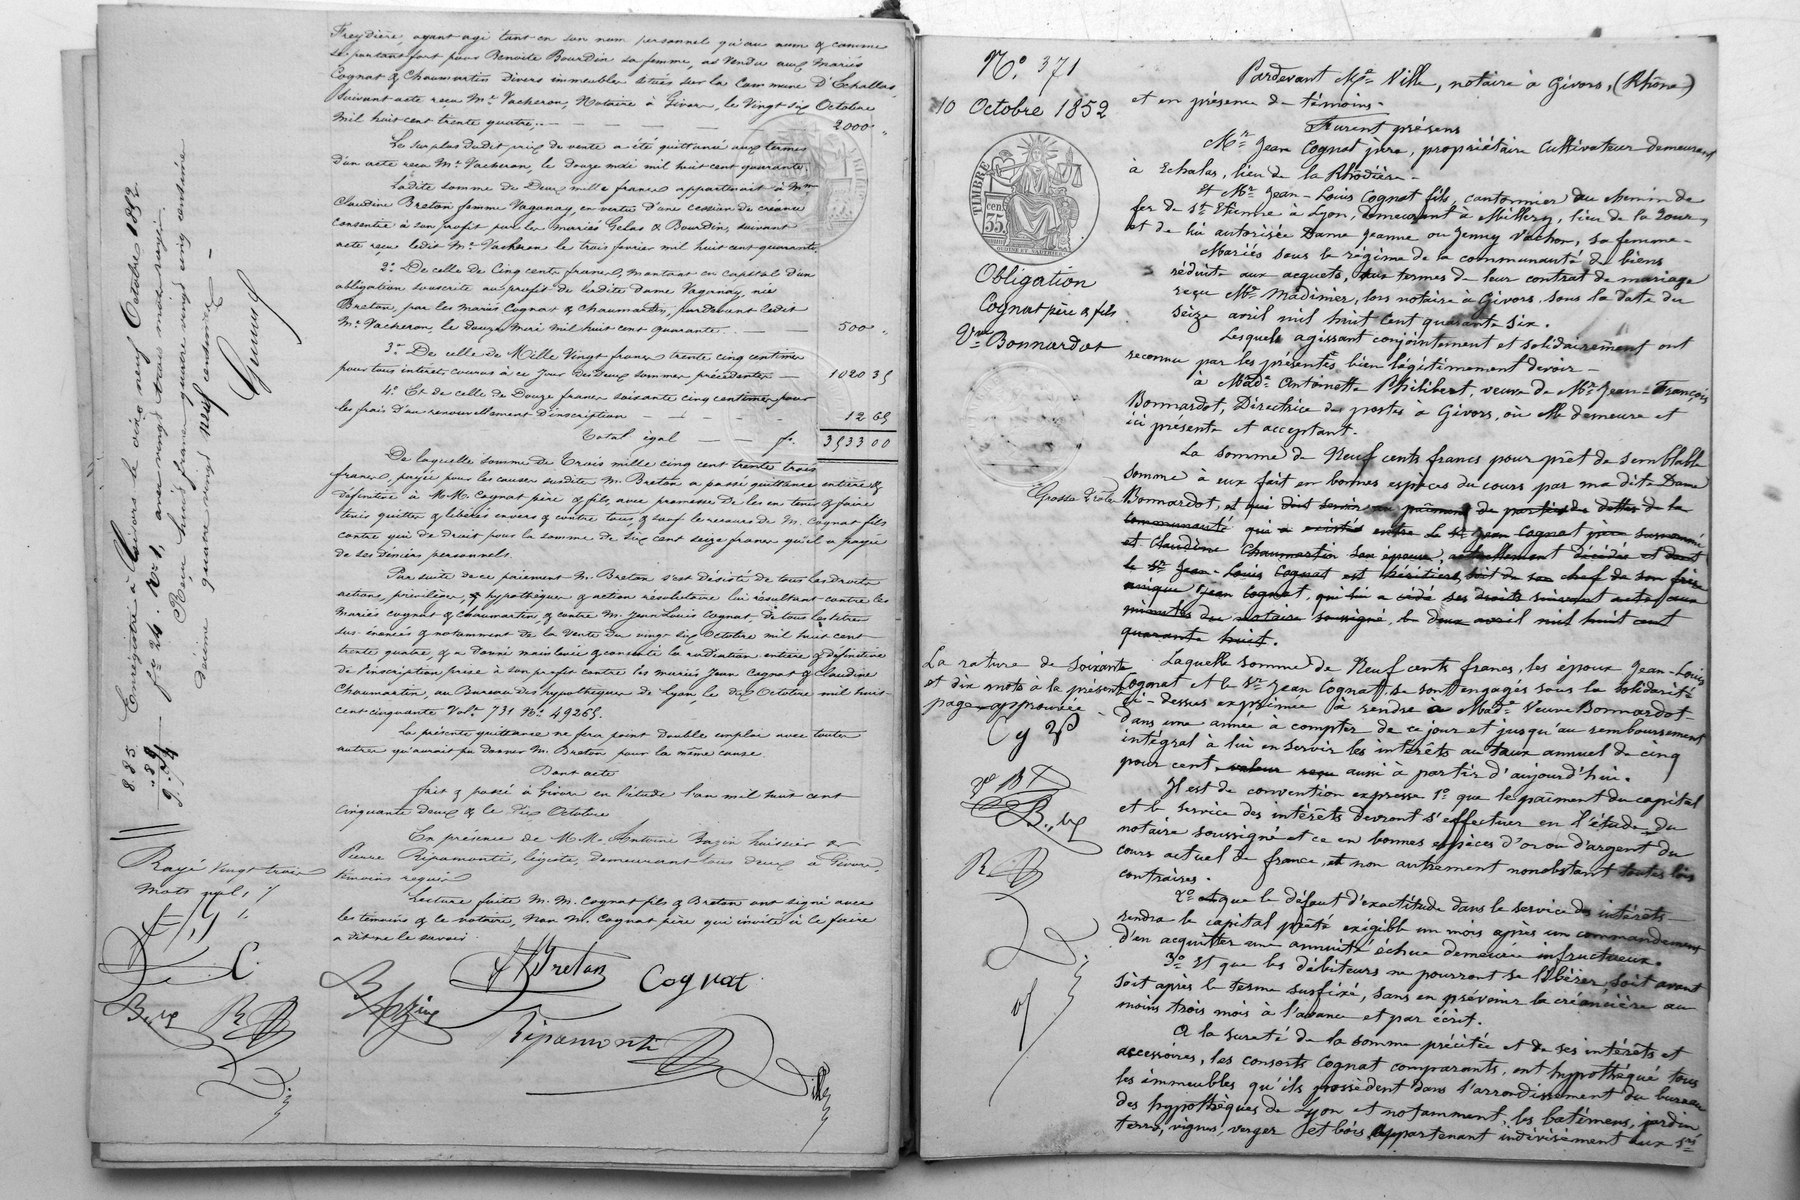 Freydière, ayant agi tant en son nom personnel qu'au nom & comme
se portant fort pour Benoite Bourdin sa femme, as vendu aux mariés
Cognat & Chaumartin divers immeubles situés sur la Commune D'Echallas,
suivant acte reçu Me Vacheron, Notaire à Givors, le vingt six Octobre
mil huit cent trente quatre, — — — — 2000 "
Le surplus dudit prix de vente a été quittancé aux termes
d'un acte reçu Me Vacheron, le douze mai mil huit cent quarante.
Ladite somme de Deux mille francs appartenait à Mme
Claudine Breton femme Vaganay, en vertu d'une cession de créance
consentie à son profit par les mariés Gelas & Bourdin, suivant
acte reçu ledit Me Vacheron le trois février mil huit cent quarante.
2° De celle de Cinq cents francs, montant en capital d'une
obligation souscrite au profit de ladite Dame Vaganay, née
Breton, par les mariés Cognat & Chaumartin, pardevant ledit
Me Vacheron, le douze Mai mil huit cent quarante. — — 500 "
3° De celle de Mille Vingt francs trente cinq centimes
pour tous intérêts courus à ce jour des deux sommes précédentes — 1020 35
4° Et de celle de Douze francs soixante cinq centimes pour
les frais d'un renouvellement d'inscription — — — 12 65
Total égal — — fr. 3533 00
De laquelle somme de Trois mille cinq cent trente trois
francs, payée pour les causes susdites M. Breton a passé quittance entière &
définitive à MM. Cognat père & fils, avec promesse de les en tenir & faire
tenir quittes & libérés envers & contre tous & sauf le recours de M. Cognat fils
contre qui de droit pour la somme de six cent seize francs qu'il a payée
de ses deniers personnels.
Par suite de ce paiement M. Breton s'est désisté de tous les droits
actions, privilèges, & hypothèques & action résolutoire lui résultant contre les
mariés Cognat & Chaumartin, & contre M. Jean Louis Cognat, de tous les titres
sus énoncés & notamment de la vente du vingt six Octobre mil huit cent
trente quatre, & a donné mainlevée & consenti la radiation entière & définitive
de l'inscription prise à son profit contre les mariés Jean Cognat & Claudine
Chaumartin, au Bureau des hypothèques de Lyon, le dix Octobre mil huit
cent cinquante Vol. 731 No. 49265.
La présente quittance ne fera point double emploi avec toutes
autres qu'aurait pu donner M. Breton pour la même cause.
Dont acte
fait & passé à Givors en l'étude l'an mil huit cent
cinquante deux & le Dix Octobre
En présence de M.M. Antoine Bazin huissier &
Pierre Ripamonti, légiste, demeurant tous deux à Givors,
témoins requis
Lecture faite M.M. Cognat fils & Breton ont signé avec
les témoins & le notaire, non M. Cognat père qui invité à le faire
a dit ne le savoir
Breton Cognat
Bazin
Ripamonti
Enregistré à Givors le dix neuf Octobre 1852
fo 24. Vo 1,
Reçu huit francs quatre vingt cinq centimes
décime quatre vingt neuf centimes —
8.85
" 89
9.74
Rayé vingt trois
mots nuls
C.
No. 371
10 Octobre 1852
TIMBRE
35 cent
Obligation
Cognat père & fils
Vve Bonnardot
La rature de soixante
et dix mots à la présente
page approuvée
Pardevant Me Ville, notaire à Givors, (Rhône)
et en présence de témoins.
Furent présens
Mr Jean Cognat père, propriétaire cultivateur demeurant
à Echalas, lieu de la Rhôdière.
Et Mr Jean-Louis Cognat fils, cantonnier au chemin de
fer de St Etienne à Lyon, demeurant à Millery, lieu de la Tour,
et de lui autorisée Dame Jeanne ou Jenny Vachon, sa femme.
Mariés sous le régime de la communauté de biens
réduite aux acquets, aux termes de leur contrat de mariage
reçu Me Madinier, lors notaire à Givors, sous la date du
seize avril mil huit cent quarante six.
Lesquels agissant conjointement et solidairement ont
reconnu par les présentes bien légitimement devoir —
à Made Antoinette Philibert, veuve de Mr Jean-François
Bonnardot, Directrice des postes à Givors, où elle demeure et
ici présente et acceptant.
La somme de Neuf cents francs pour prêt de semblable
somme à eux fait en bonnes espèces du cours par ma dite Dame
Bonnardot, et qui doit servir au paiement de partie des dettes de la
communauté qui a existé entre le Sr Jean Cognat père susnommé
et Claudine Chaumartin son épouse, actuellement décédée et dont
le Sr Jean-Louis Cognat est héritier, soit de son chef de son frère
unique Jean Cognat, qui lui a cédé ses droits suivant acte aux
minutes du notaire soussigné, le deux avril mil huit cent
quarante huit.
Laquelle somme de Neuf cents francs, les époux Jean-Louis
Cognat et le Sr Jean Cognat, se sont engagés sous la solidarité
ci-dessus exprimée à rendre a Made Veuve Bonnardot
dans une année à compter de ce jour et jusqu'au remboursement
intégral à lui en servir les intérêts au taux annuel de cinq
pour cent, valeur reçu aussi à partir d'aujourd'hui.
Il est de convention expresse 1° que le paîment du capital
et le service des intérêts devront s'effectuer en l'étude du
notaire soussigné et ce en bonnes espèces d'or ou d'argent du
cours actuel de france, et non autrement nonobstant toutes lois
contraires.
2° et que le défaut d'exactitude dans le service des intérêts
rendra le capital prêté exigible un mois après un commandement
d'en acquitter une annuité échue demeurée infructueux.
3° Et que les débiteurs ne pourront se libérer, soit avant
soit après le terme susfixé, sans en prévenir la créancière au
moins trois mois à l'avance et par écrit.
A la sureté de la somme précitée et de ses intérêts et
accessoires, les consorts Cognat comparants, ont hypothéqué tous
les immeubles qu'ils possèdent dans l'arrondissement du bureau
des hypothèques de Lyon et notamment, les batimens, jardin,
terres, vignes, verger et bois appartenant indivisément aux Srs